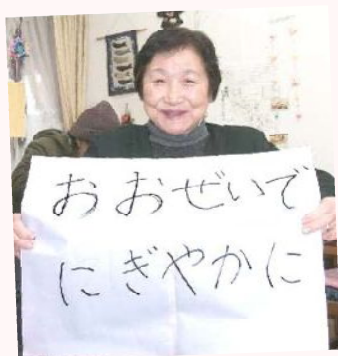 おおぜいで
にぎやかに